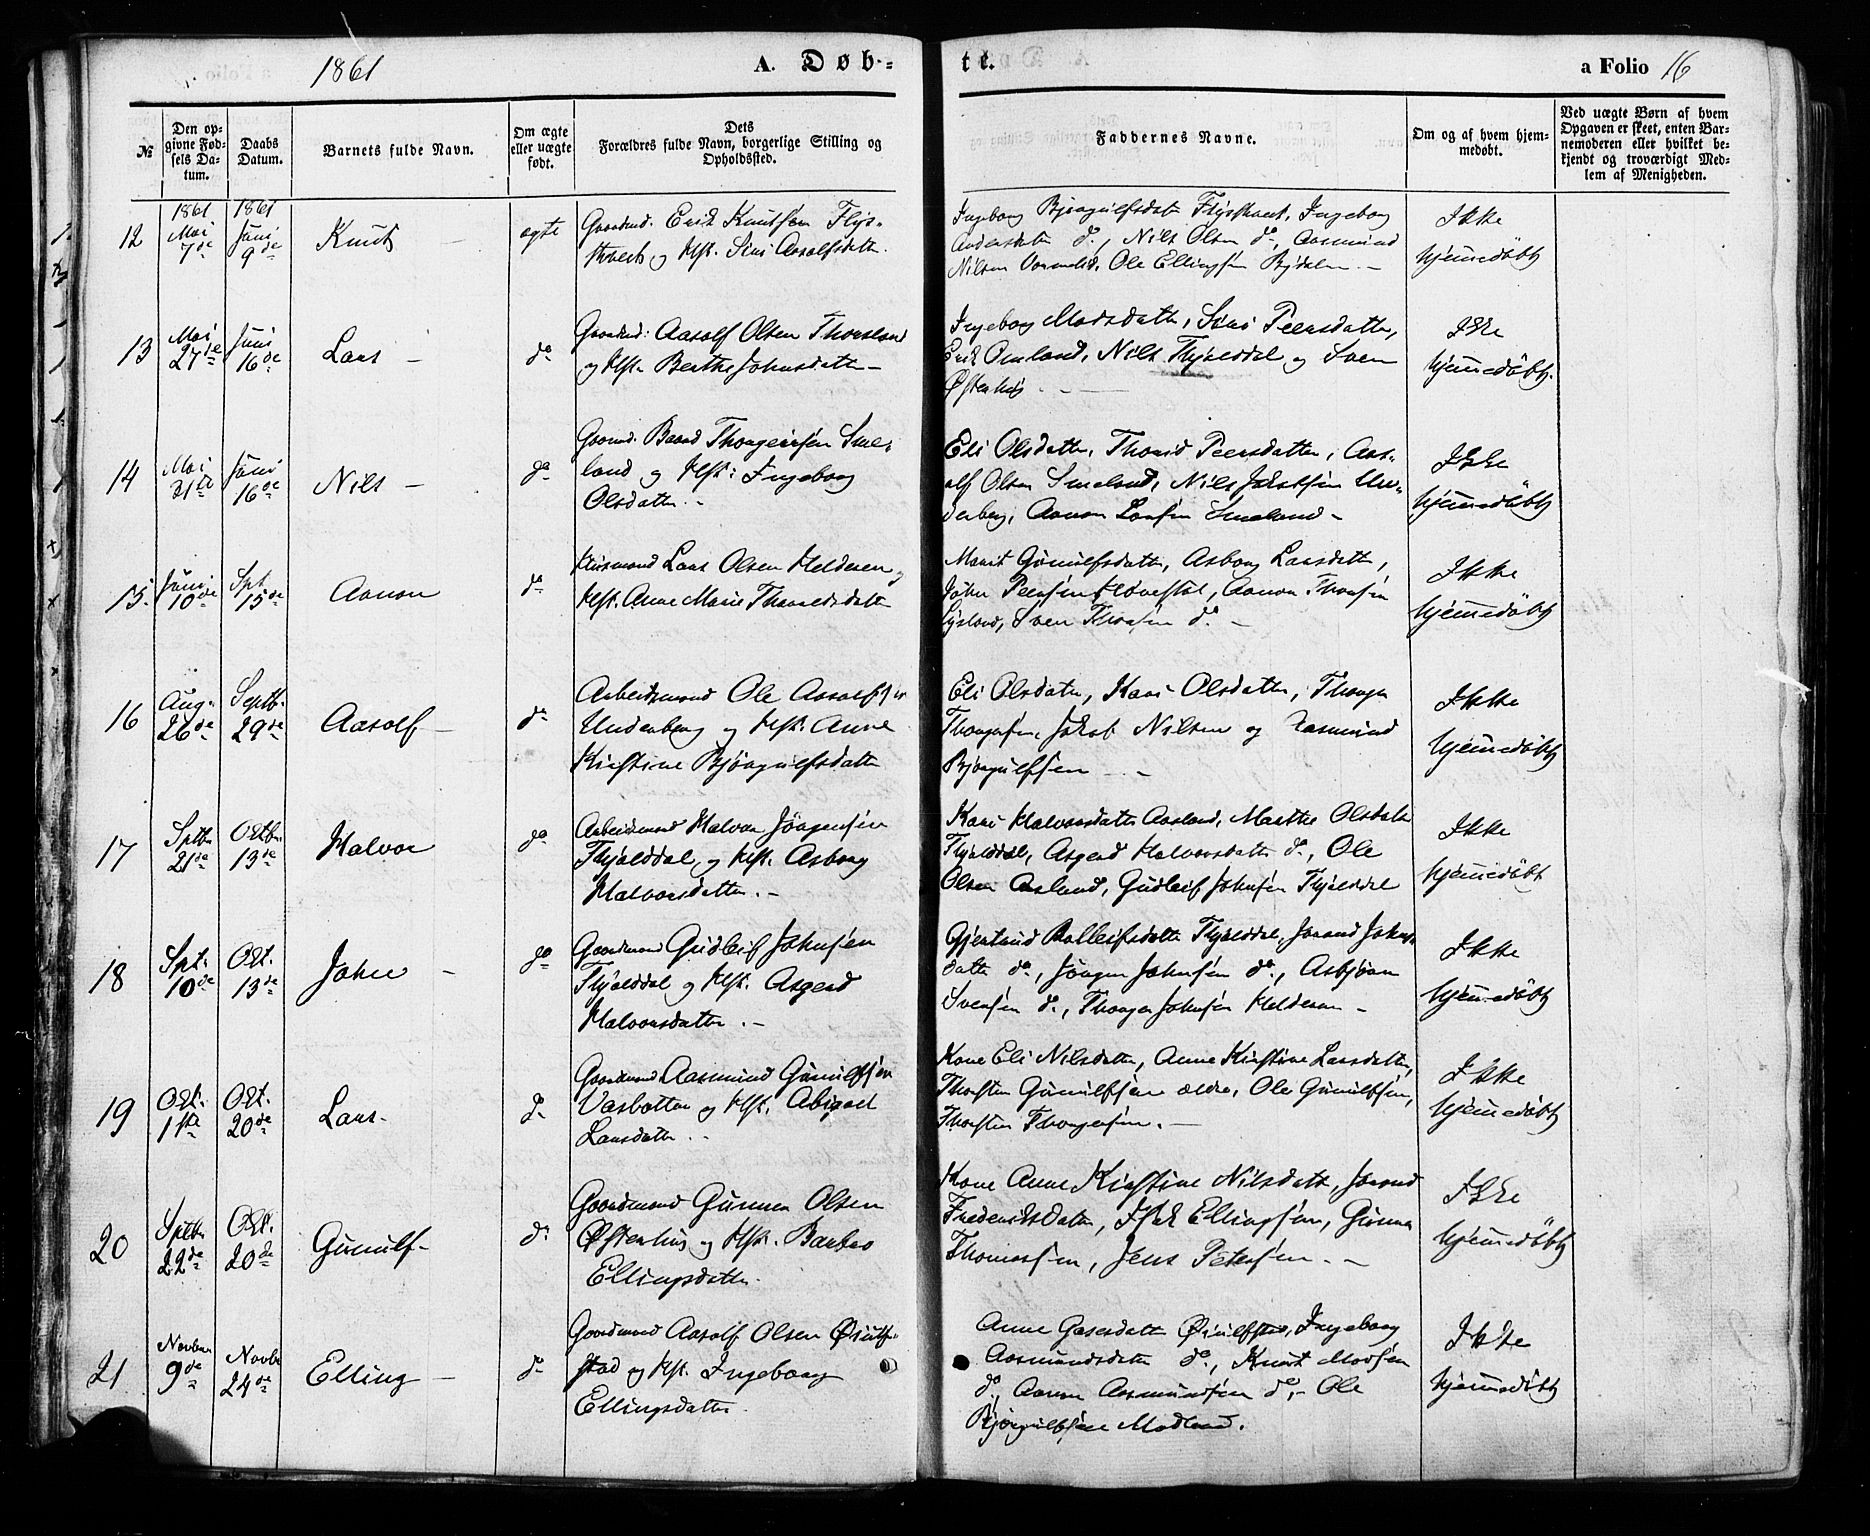 1861 A. Døb- te. a Folio 16
№
Den opgivne Fødsels Datum.
Daabs Datum.
Barnets fulde Navn.
Om ægte eller uægte født.
Dets Forældres fulde Navn, borgerlige Stilling og Opholdssted.
Faddernes Navne.
Om og af hvem hjemmedøbt.
Ved uægte Børn af hvem Opgaven er skeet, enten Barnemoderen eller hvilket bekjendt og troværdigt Medlem af Menigheden.
1861 1861
12 Mai 7de Juni 9de Knut ægte
Gaardmd. Erik Knutsen
og Hst. Siri Aasolfsdatter.
Ingeborg Bjørgulfsdatter Ingeborg
Andersdatter do, Nils Olsen do, Aasmund
Nilsen Ole Ellingsen
Ikke
hjemmedøbt
13 Mai 27de Juni 16de Lars do
Gaardmd: Aasolf Olsen Thorsland
og Hst. Berthe Johnsdatter
Ingeborg Madsdatter, Siri Peersdatter,
Erik Omland, Nils Thjelddal og Sven
Østenhus
Ikke
hjemmedøbt.
14 Mai 31te Juni 16de Nils do
Gaardmd. Baard Thorgersen Sme-
land og Hst: Ingeborg
Olsdatter.
Eli Olsdatter, Thorid Peersdatter, Aas-
olf Olsen Smeland, Nils Jakobsen Un-
derberg, Aanon Larsen Smeland
Ikke
hjemmedøbt
15. Juni 10de Spt. 15de Aanon do
Huusmand Lars Olsen Helderen og
Hst. Anne Marie Thorvaldsdatter
Marit Gunulfsdatter, Asborg Larsdatter,
John Peersen Aanon Thorsen
Lysland, Sven Thorsen do
Ikke
hjemmedøbt
16 Aug. 26de Septb. 29de Aasolf do
Arbeidsmand Ole Aasolfsen
Underberg og Hst: Anne
Kirstine Bjørgulfsdatter
Eli Olsdatter, Kari Olsdatter, Thorger
Thorgersen, Jakob Nilsen og Aasmund
Bjørgulfsen
Ikke
hjemmedøbt
17 Septbr 21de Octbr. 13de Halvor do
Arbeidsmand Halvor Jörgensen
Thjelddal og Hst. Asborg
Halvorsdatter.
Kari Halvorsdatter Aasland, Marthe Olsdatter
Thjelddal, Asgerd Halvorsdatter do, Ole
Olsen Aasland, Gudleif Johnsen Thjelddal
Ikke
hjemmedøbt
18 Spt. 10de Oct. 13de John do
Gaardmand Gudleif Johnsen
Thjelddal og Hst. Asgerd
Halvorsdatter.
Gjertrud Rolleifsdatter Thjelddal, Jorand Johns-
datter do, Jörgen Johnsen do, Asbjörn
Svensen do, Thorger Johnsen Helderen
Ikke
hjemmedøbt
19 Oct. 1ste Oct. 20de Lars. do
Gaardmand Aasmund Gunulfsen
Vasbotten og Hst. Abigael
Larsdatter.
Kone Eli Nilsdatter, Anne Kirstine Larsdatter,
Thorsten Gunulfsen ældre, Ole Gunulfsen,
Thorsten Thorgersen.
Ikke
hjemmedøbt
20 Septbr 22de Oct. 20de Gunulf do
Gaardmand Gunnar Olsen
Østenhus og Hst. Barbro
Ellingsdatter.
Kone Anne Kirstine Nilsdatt, Jorand
Frederiksdatter, Isak Ellingsen, Gunnar
Thomassen, Jens Petersen.
Ikke
hjemmedøbt
21 Novbr 9de Novbr 24de Elling do
Gaardmand Aasolf Olsen Øiulf-
stad og Hst. Ingeborg
Ellingsdatter.
Anne Øiulfstad, Ingeborg
Aasmundsdatter do, Knut Madsen
do, Aanon Aasmundsen do, Ole
Bjørgulfsen Modland.
Ikke
hjemmedøbt